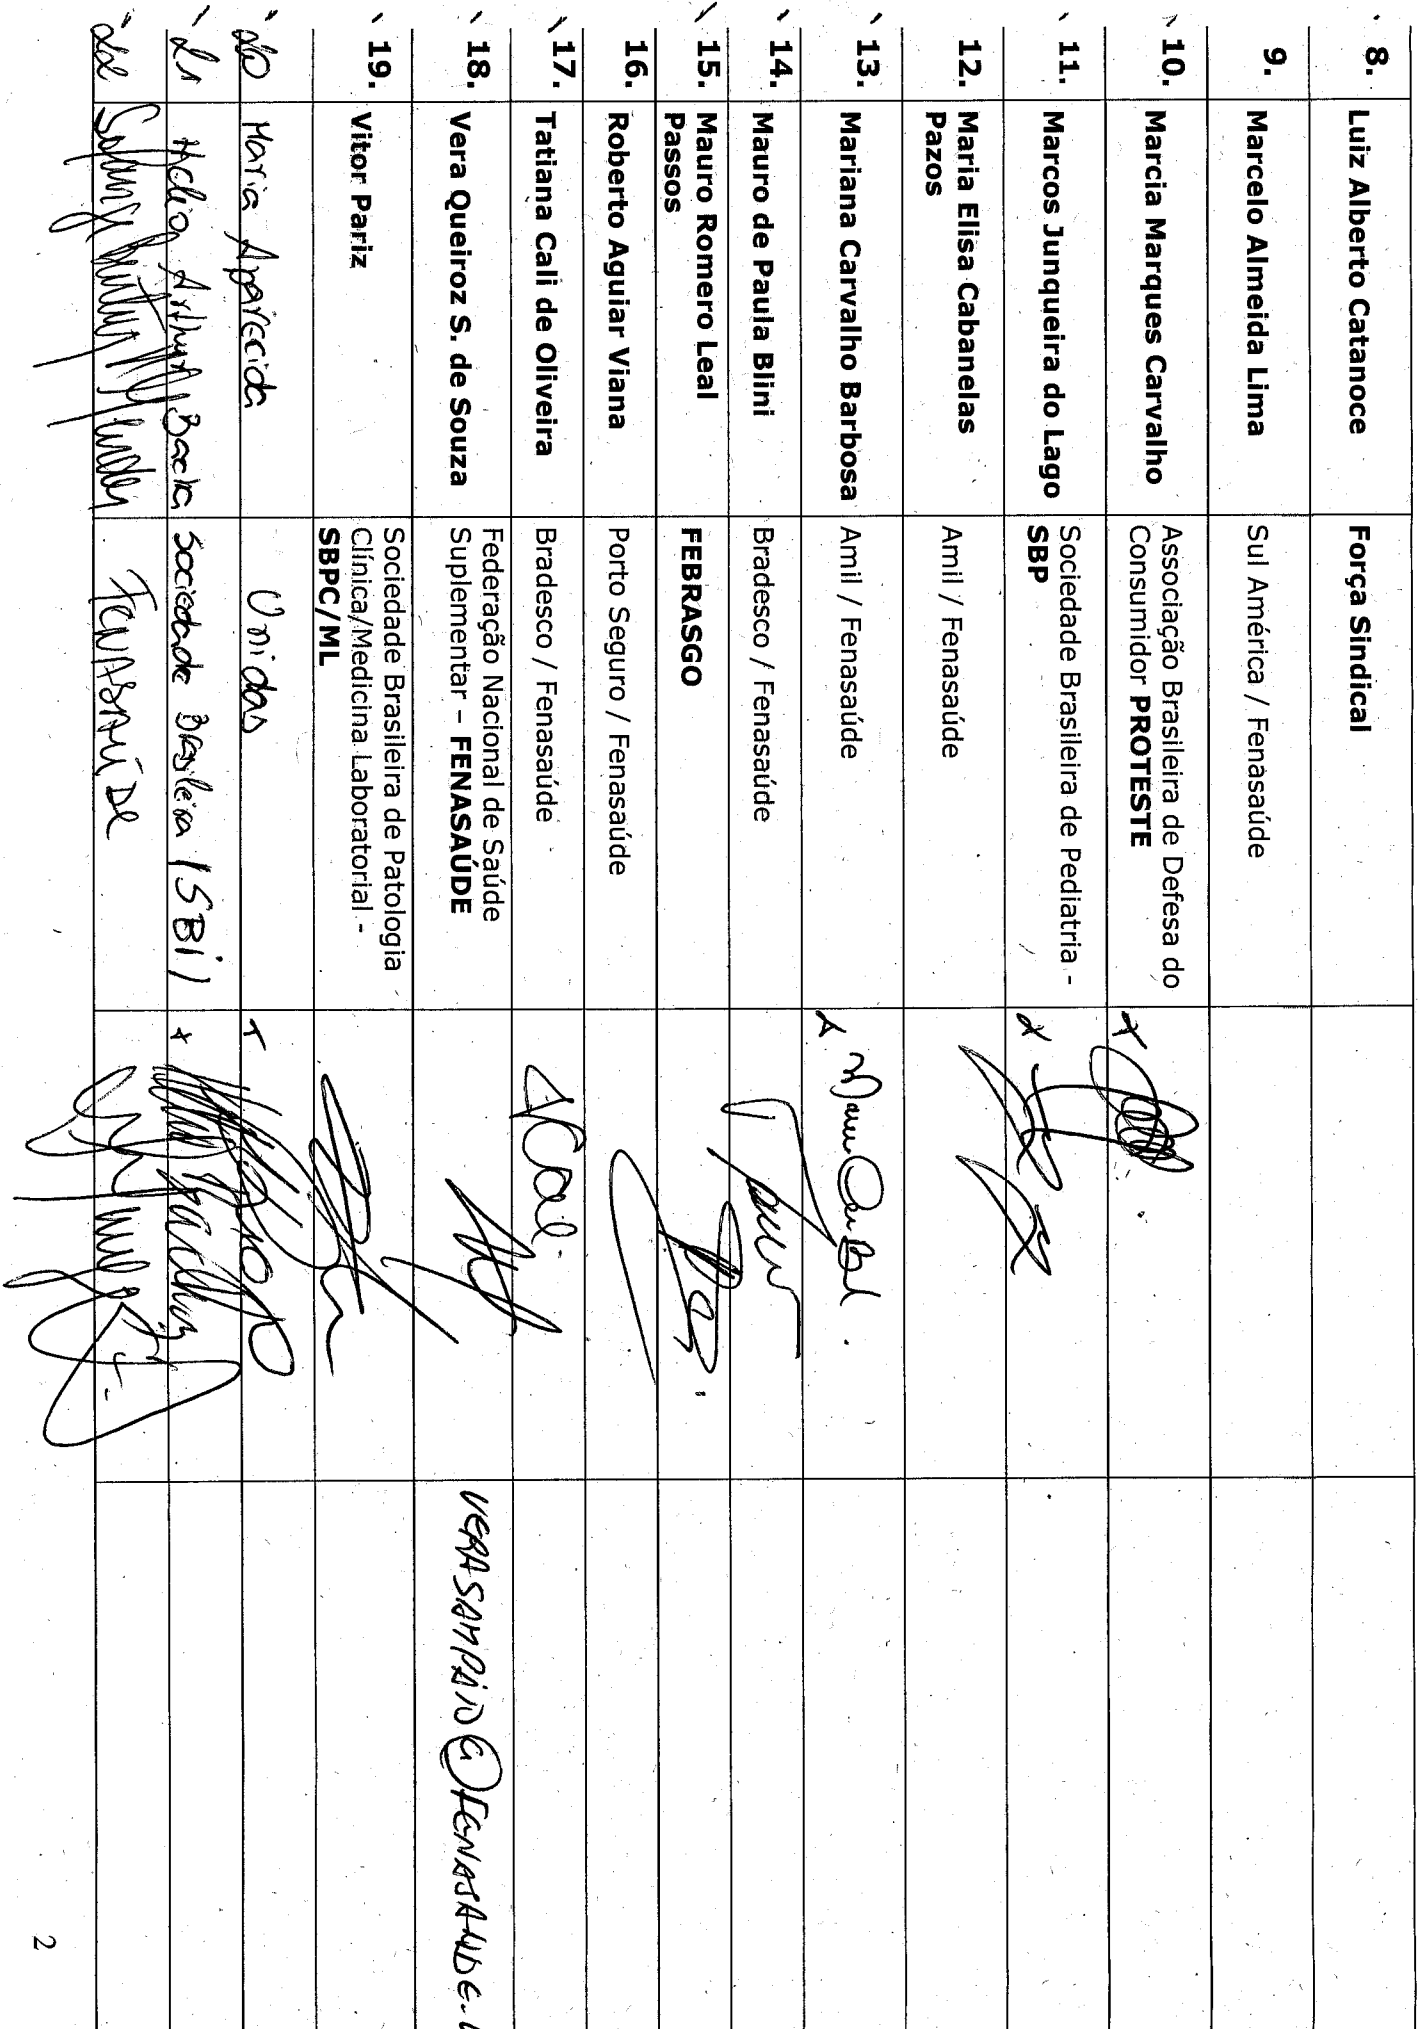 8. Luiz Alberto Catanoce Força Sindical
9. Marcelo Almeida Lima Sul América / Fenasaúde
10. Marcia Marques Carvalho Associação Brasileira de Defesa do
Consumidor PROTESTE
11. Marcos Junqueira do Lago Sociedade Brasileira de Pediatria -
SBP
12. Maria Elisa Cabanelas Amil / Fenasaúde
Pazos
13. Mariana Carvalho Barbosa Amil / Fenasaúde
14. Mauro de Paula Blini Bradesco / Fenasaúde
15. Mauro Romero Leal FEBRASGO
Passos
16. Roberto Aguiar Viana Porto Seguro / Fenasaúde
17. Tatiana Cali de Oliveira Bradesco / Fenasaúde
18. Vera Queiroz S. de Souza Federação Nacional de Saúde
Suplementar – FENASAÚDE
VERASAMPAIO@FENASAUDE.
19. Vitor Pariz Sociedade Brasileira de Patologia
Clínica/Medicina Laboratorial -
SBPC/ML
20 Maria Aparecida Unidas
21 Helio Arthur Bacha Sociedade Brasileira (SBI)
22 Mendes FENASAÚDE
2